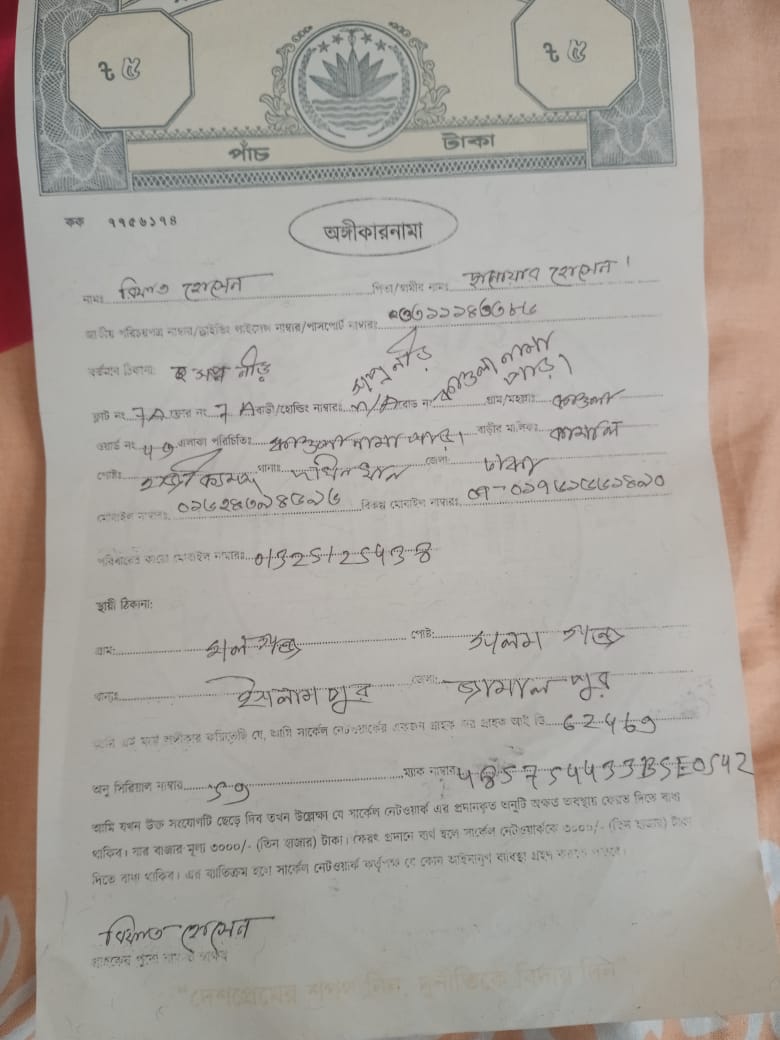 ৳ ৫ ৳ ৫
পাঁচ টাকা
কক ৭৭৫৬১৭৪
অঙ্গীকারনামা
নামঃ রিফাত হোসেন পিতা/স্বামীর নামঃ হোসেন।
জাতীয় পরিচয়পত্র নাম্বার/ড্রাইভিং লাইসেন্স নাম্বার/পাসপোর্ট নাম্বারঃ
বর্তমান ঠিকানা: স্বপ্ন নীড় স্বপ্ননীড়
ফ্লাট নং 7A ফ্লোর নং 7 বাড়ী/হোল্ডিং নাম্বারঃ N/A রোড নং কাওলা নামা পাড়া। গ্রাম/মহল্লাঃ কাওলা
ওয়ার্ড নং ৪৯ এলাকা পরিচিতিঃ কাওলা নামা পাড়া। বাড়ীর মালিকঃ কামাল
পোষ্টঃ থানাঃ দক্ষিনখান জেলাঃ ঢাকা
মোবাইল নাম্বারঃ বিকল্প মোবাইল নাম্বারঃ
পরিবারের কারো মোবাইল নাম্বারঃ 01325125438
স্থায়ী ঠিকানা:
গ্রাম: পোষ্ট: গঞ্জ
থানাঃ ইসলামপুর জেলা: জামাল পুর
আমি এই মর্মে অঙ্গীকার করিতেছি যে, আমি সার্কেল নেটওয়ার্কের একজন গ্রাহক যার গ্রাহক আই ডি 62469
অনু সিরিয়াল নাম্বার 59 ম্যাক নাম্বার 485754433B5E0542
আমি যখন উক্ত সংযোগটি ছেড়ে দিব তখন উল্লেক্ষ্য যে সার্কেল নেটওয়ার্ক এর প্রদানকৃত অনুটি অক্ষত অবস্থায় ফেরত দিতে বাধ্য
থাকিব। যার বাজার মূল্য ৩০০০/- (তিন হাজার) টাকা। ফেরৎ প্রদানে ব্যর্থ হলে সার্কেল নেটওয়ার্ককে ৩০০০/- (তিন হাজার) টাকা
দিতে বাধ্য থাকিব। এর ব্যতিক্রম হলে সার্কেল নেটওয়ার্ক কর্তৃপক্ষ যে কোন আইনানুগ ব্যবস্থা গ্রহন করতে পারবে।
রিফাত হোসেন
গ্রাহকের পুরো নাম স্বাক্ষর
"দেশপ্রেমের শপথ নিন, দুর্নীতিকে বিদায় দিন"